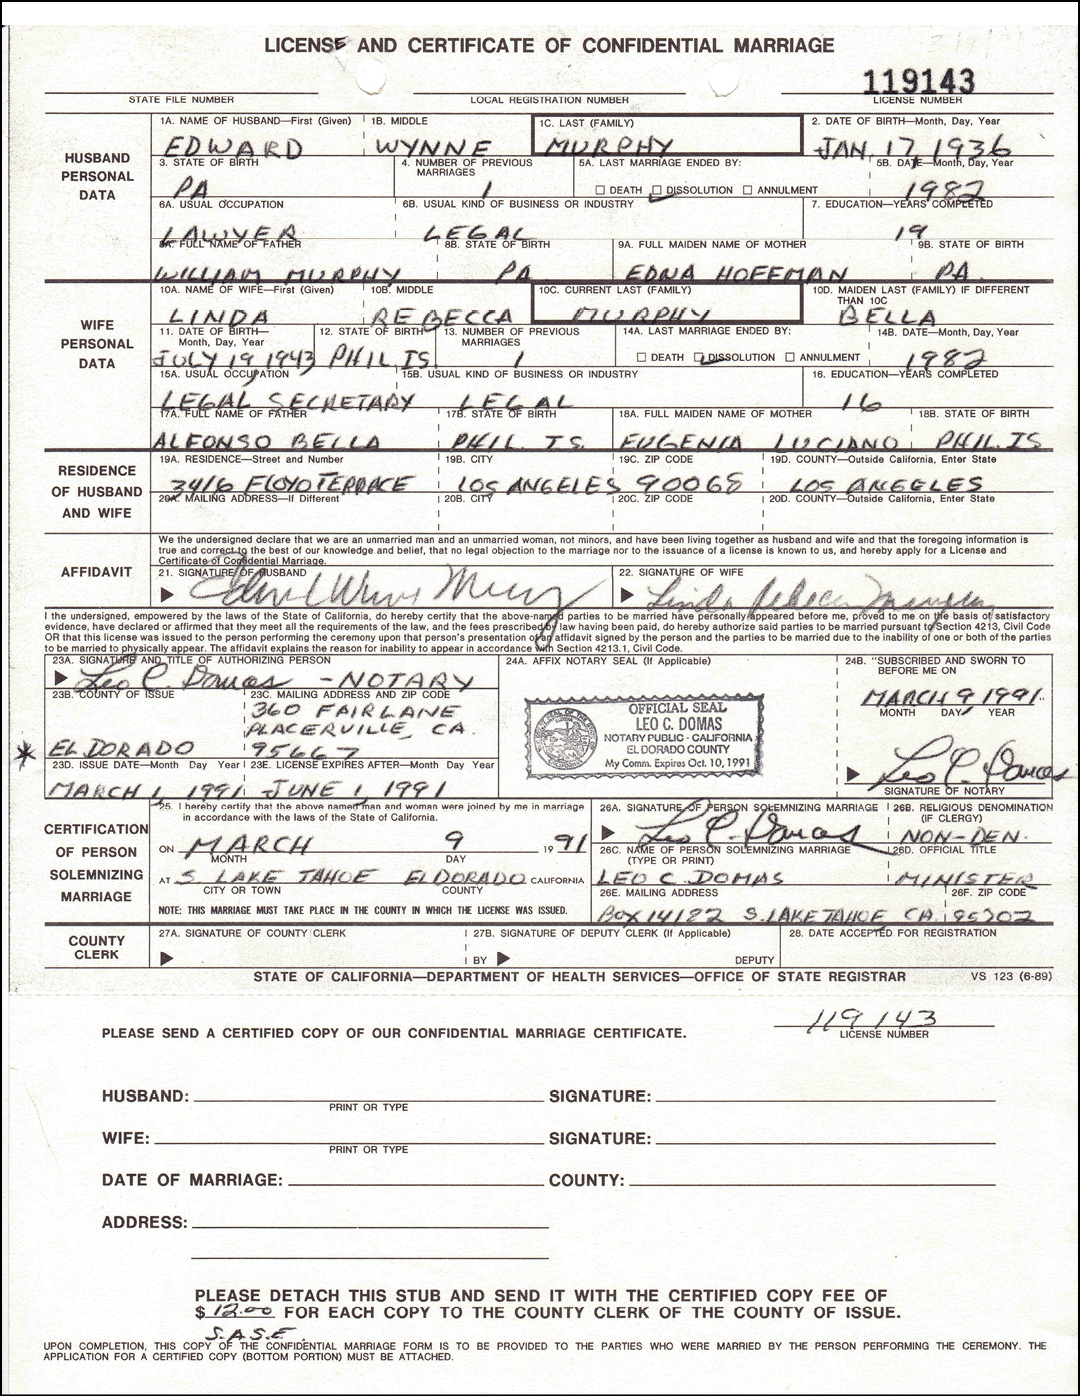 LICENSE AND CERTIFICATE OF CONFIDENTIAL MARRIAGE
119143
STATE FILE NUMBER LOCAL REGISTRATION NUMBER LICENSE NUMBER
HUSBAND PERSONAL DATA
1A. NAME OF HUSBAND—First (Given) 1B. MIDDLE 1C. LAST (FAMILY) 2. DATE OF BIRTH—Month, Day, Year
EDWARD WYNNE MURPHY JAN. 17, 1936
3. STATE OF BIRTH 4. NUMBER OF PREVIOUS MARRIAGES 5A. LAST MARRIAGE ENDED BY: 5B. DATE—Month, Day, Year
PA 1 ☐ DEATH ☑ DISSOLUTION ☐ ANNULMENT 1982
6A. USUAL OCCUPATION 6B. USUAL KIND OF BUSINESS OR INDUSTRY 7. EDUCATION—YEARS COMPLETED
LAWYER LEGAL 19
8A. FULL NAME OF FATHER 8B. STATE OF BIRTH 9A. FULL MAIDEN NAME OF MOTHER 9B. STATE OF BIRTH
WILLIAM MURPHY PA EDNA HOFFMAN PA.
WIFE PERSONAL DATA
10A. NAME OF WIFE—First (Given) 10B. MIDDLE 10C. CURRENT LAST (FAMILY) 10D. MAIDEN LAST (FAMILY) IF DIFFERENT THAN 10C
LINDA REBECCA MURPHY BELLA
11. DATE OF BIRTH—Month, Day, Year 12. STATE OF BIRTH 13. NUMBER OF PREVIOUS MARRIAGES 14A. LAST MARRIAGE ENDED BY: 14B. DATE—Month, Day, Year
JULY 19, 1943 PHIL. IS. 1 ☐ DEATH ☑ DISSOLUTION ☐ ANNULMENT 1982
15A. USUAL OCCUPATION 15B. USUAL KIND OF BUSINESS OR INDUSTRY 16. EDUCATION—YEARS COMPLETED
LEGAL SECRETARY LEGAL 16
17A. FULL NAME OF FATHER 17B. STATE OF BIRTH 18A. FULL MAIDEN NAME OF MOTHER 18B. STATE OF BIRTH
ALFONSO BELLA PHIL. IS. EUGENIA LUCIANO PHIL. IS
RESIDENCE OF HUSBAND AND WIFE
19A. RESIDENCE—Street and Number 19B. CITY 19C. ZIP CODE 19D. COUNTY—Outside California, Enter State
3416 FLOYD TERRACE LOS ANGELES 90068 LOS ANGELES
20A. MAILING ADDRESS—If Different 20B. CITY 20C. ZIP CODE 20D. COUNTY—Outside California, Enter State
AFFIDAVIT
We the undersigned declare that we are an unmarried man and an unmarried woman, not minors, and have been living together as husband and wife and that the foregoing information is
true and correct to the best of our knowledge and belief, that no legal objection to the marriage nor to the issuance of a license is known to us, and hereby apply for a License and
Certificate of Confidential Marriage.
21. SIGNATURE OF HUSBAND 22. SIGNATURE OF WIFE
Edward Wynne Murphy Linda Rebecca Murphy
I the undersigned, empowered by the laws of the State of California, do hereby certify that the above-named parties to be married have personally appeared before me, proved to me on the basis of satisfactory
evidence, have declared or affirmed that they meet all the requirements of the law, and the fees prescribed by law having been paid, do hereby authorize said parties to be married pursuant to Section 4213, Civil Code
OR that this license was issued to the person performing the ceremony upon that person's presentation of an affidavit signed by the person and the parties to be married due to the inability of one or both of the parties
to be married to physically appear. The affidavit explains the reason for inability to appear in accordance with Section 4213.1, Civil Code.
23A. SIGNATURE AND TITLE OF AUTHORIZING PERSON 24A. AFFIX NOTARY SEAL (If Applicable) 24B. "SUBSCRIBED AND SWORN TO BEFORE ME ON
Leo C. Domas - NOTARY
MARCH 9 1991
MONTH DAY YEAR
23B. COUNTY OF ISSUE 23C. MAILING ADDRESS AND ZIP CODE
360 FAIRLANE
PLACERVILLE, CA.
* EL DORADO 95667
OFFICIAL SEAL
LEO C. DOMAS
NOTARY PUBLIC - CALIFORNIA
EL DORADO COUNTY
My Comm. Expires Oct. 10, 1991
Leo C. Domas
SIGNATURE OF NOTARY
23D. ISSUE DATE—Month Day Year 23E. LICENSE EXPIRES AFTER—Month Day Year
MARCH 1, 1991 JUNE 1, 1991
CERTIFICATION OF PERSON SOLEMNIZING MARRIAGE
25. I hereby certify that the above named man and woman were joined by me in marriage
in accordance with the laws of the State of California.
ON MARCH 9 19 91
MONTH DAY
AT S. LAKE TAHOE EL DORADO CALIFORNIA
CITY OR TOWN COUNTY
NOTE: THIS MARRIAGE MUST TAKE PLACE IN THE COUNTY IN WHICH THE LICENSE WAS ISSUED.
26A. SIGNATURE OF PERSON SOLEMNIZING MARRIAGE 26B. RELIGIOUS DENOMINATION (IF CLERGY)
Leo C. Domas NON-DEN.
26C. NAME OF PERSON SOLEMNIZING MARRIAGE (TYPE OR PRINT) 26D. OFFICIAL TITLE
LEO C. DOMAS MINISTER
26E. MAILING ADDRESS 26F. ZIP CODE
BOX 14122 S. LAKE TAHOE CA. 95702
COUNTY CLERK
27A. SIGNATURE OF COUNTY CLERK 27B. SIGNATURE OF DEPUTY CLERK (If Applicable) 28. DATE ACCEPTED FOR REGISTRATION
BY DEPUTY
STATE OF CALIFORNIA—DEPARTMENT OF HEALTH SERVICES—OFFICE OF STATE REGISTRAR VS 123 (6-89)
119143
PLEASE SEND A CERTIFIED COPY OF OUR CONFIDENTIAL MARRIAGE CERTIFICATE. LICENSE NUMBER
HUSBAND: SIGNATURE:
PRINT OR TYPE
WIFE: SIGNATURE:
PRINT OR TYPE
DATE OF MARRIAGE: COUNTY:
ADDRESS:
PLEASE DETACH THIS STUB AND SEND IT WITH THE CERTIFIED COPY FEE OF
$ 12.00 FOR EACH COPY TO THE COUNTY CLERK OF THE COUNTY OF ISSUE.
S.A.S.E.
UPON COMPLETION, THIS COPY OF THE CONFIDENTIAL MARRIAGE FORM IS TO BE PROVIDED TO THE PARTIES WHO WERE MARRIED BY THE PERSON PERFORMING THE CEREMONY. THE
APPLICATION FOR A CERTIFIED COPY (BOTTOM PORTION) MUST BE ATTACHED.